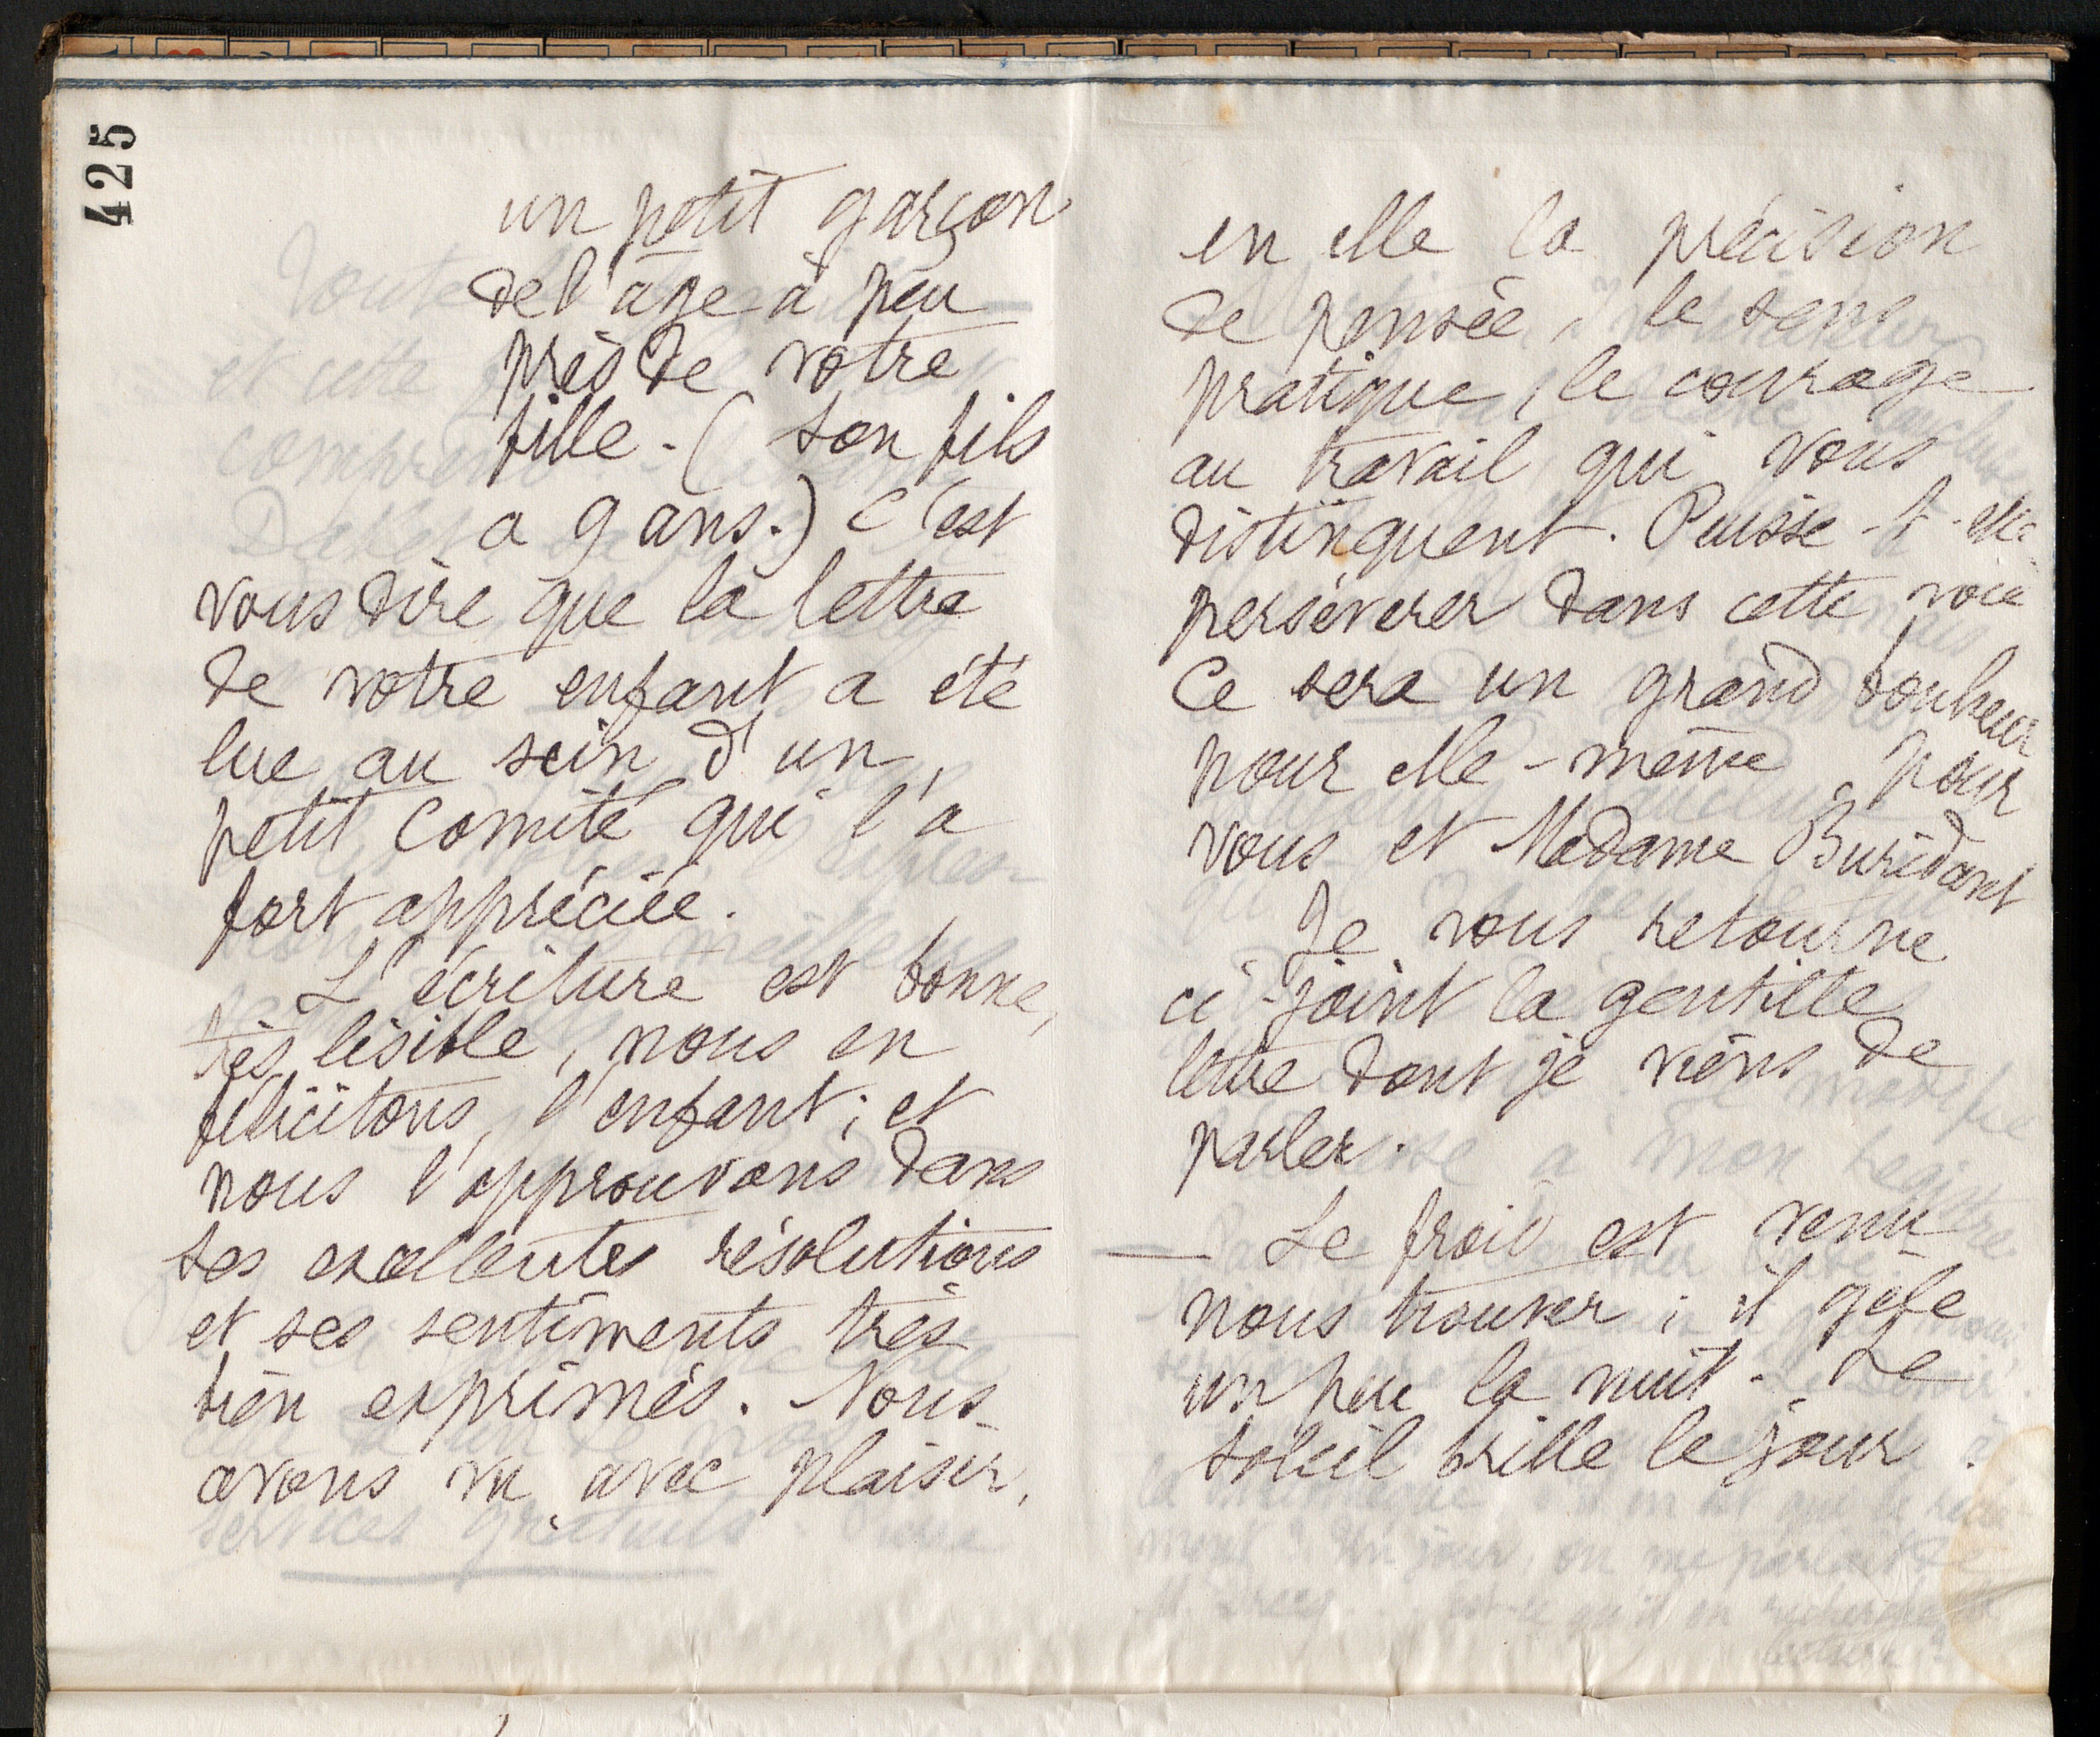 425
un petit garçon
de l'âge à peu
près de votre
fille. (son fils
a 9 ans.) C'est
vous dire que la lettre
de votre enfant a été
lue au sein d'un
petit Comité qui l'a
fort appréciée.
L'écriture est bonne,
très lisible, nous en
félicitons l'enfant ; et
nous l'approuvons dans
ses excellentes résolutions
et ses sentiments très
bien exprimés. Nous
avons vu avec plaisir,
en elle la précision
de pensée, le sens
pratique, le courage
au travail qui vous
distinguent. Puisse-t-elle
persévérer dans cette voie
Ce sera un grand bonheur
pour elle-même, pour
vous et Madame Buridant
Je vous retourne
ci-joint la gentille
lettre dont je viens de
parler.
— Le froid est venu
nous trouver ; il gèle
un peu la nuit. Le
soleil brille le jour.